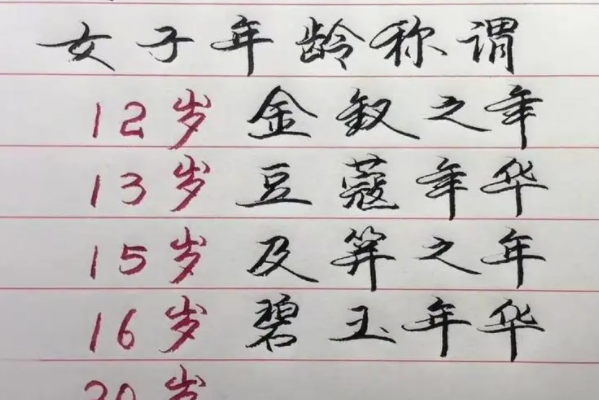 女子年龄称谓
12岁 金钗之年
13岁 豆蔻年华
15岁 及笄之年
16岁 碧玉年华
20岁